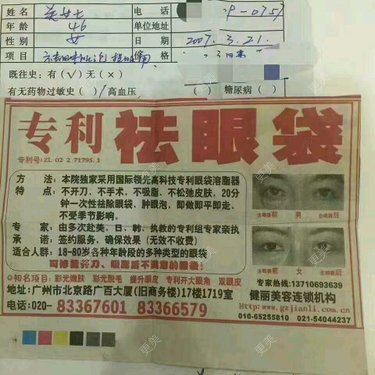 年龄 46 单位地址
性别 女 日期 2007.3.21.
项目
既往史：有（√）无（×）
有无药物过敏史（ ）高血压（ ） 糖尿病（ ）
专利祛眼袋
专利号：ZL 02 2 71795.1
方 法：本院独家采用国际领先高科技专利眼袋溶脂器
特 点：不开刀、不手术、不吸脂、不松弛皮肤、20分
钟一次性祛除眼袋、肿眼泡、即做即平即走、
不受季节影响。
专 家：由多次赴美、日、韩、执教的专利组专家亲执
承 诺：签约服务，确保效果（无效不收费）
适合人群：18-80岁各种年龄段的多种类型的眼袋
男
女
◎知名项目：彩光嫩肤 彩光脱毛 提升眼皮 专利开大眼角 双眼皮
地址：广州市北京路广百大厦(旧商务楼)17楼1719室
电话：020- 83367601 83366579
专家热线：13710693639
健丽美容连锁机构
Http:www.gzjianli.com.cn
010-65255810 021-54044237
更美